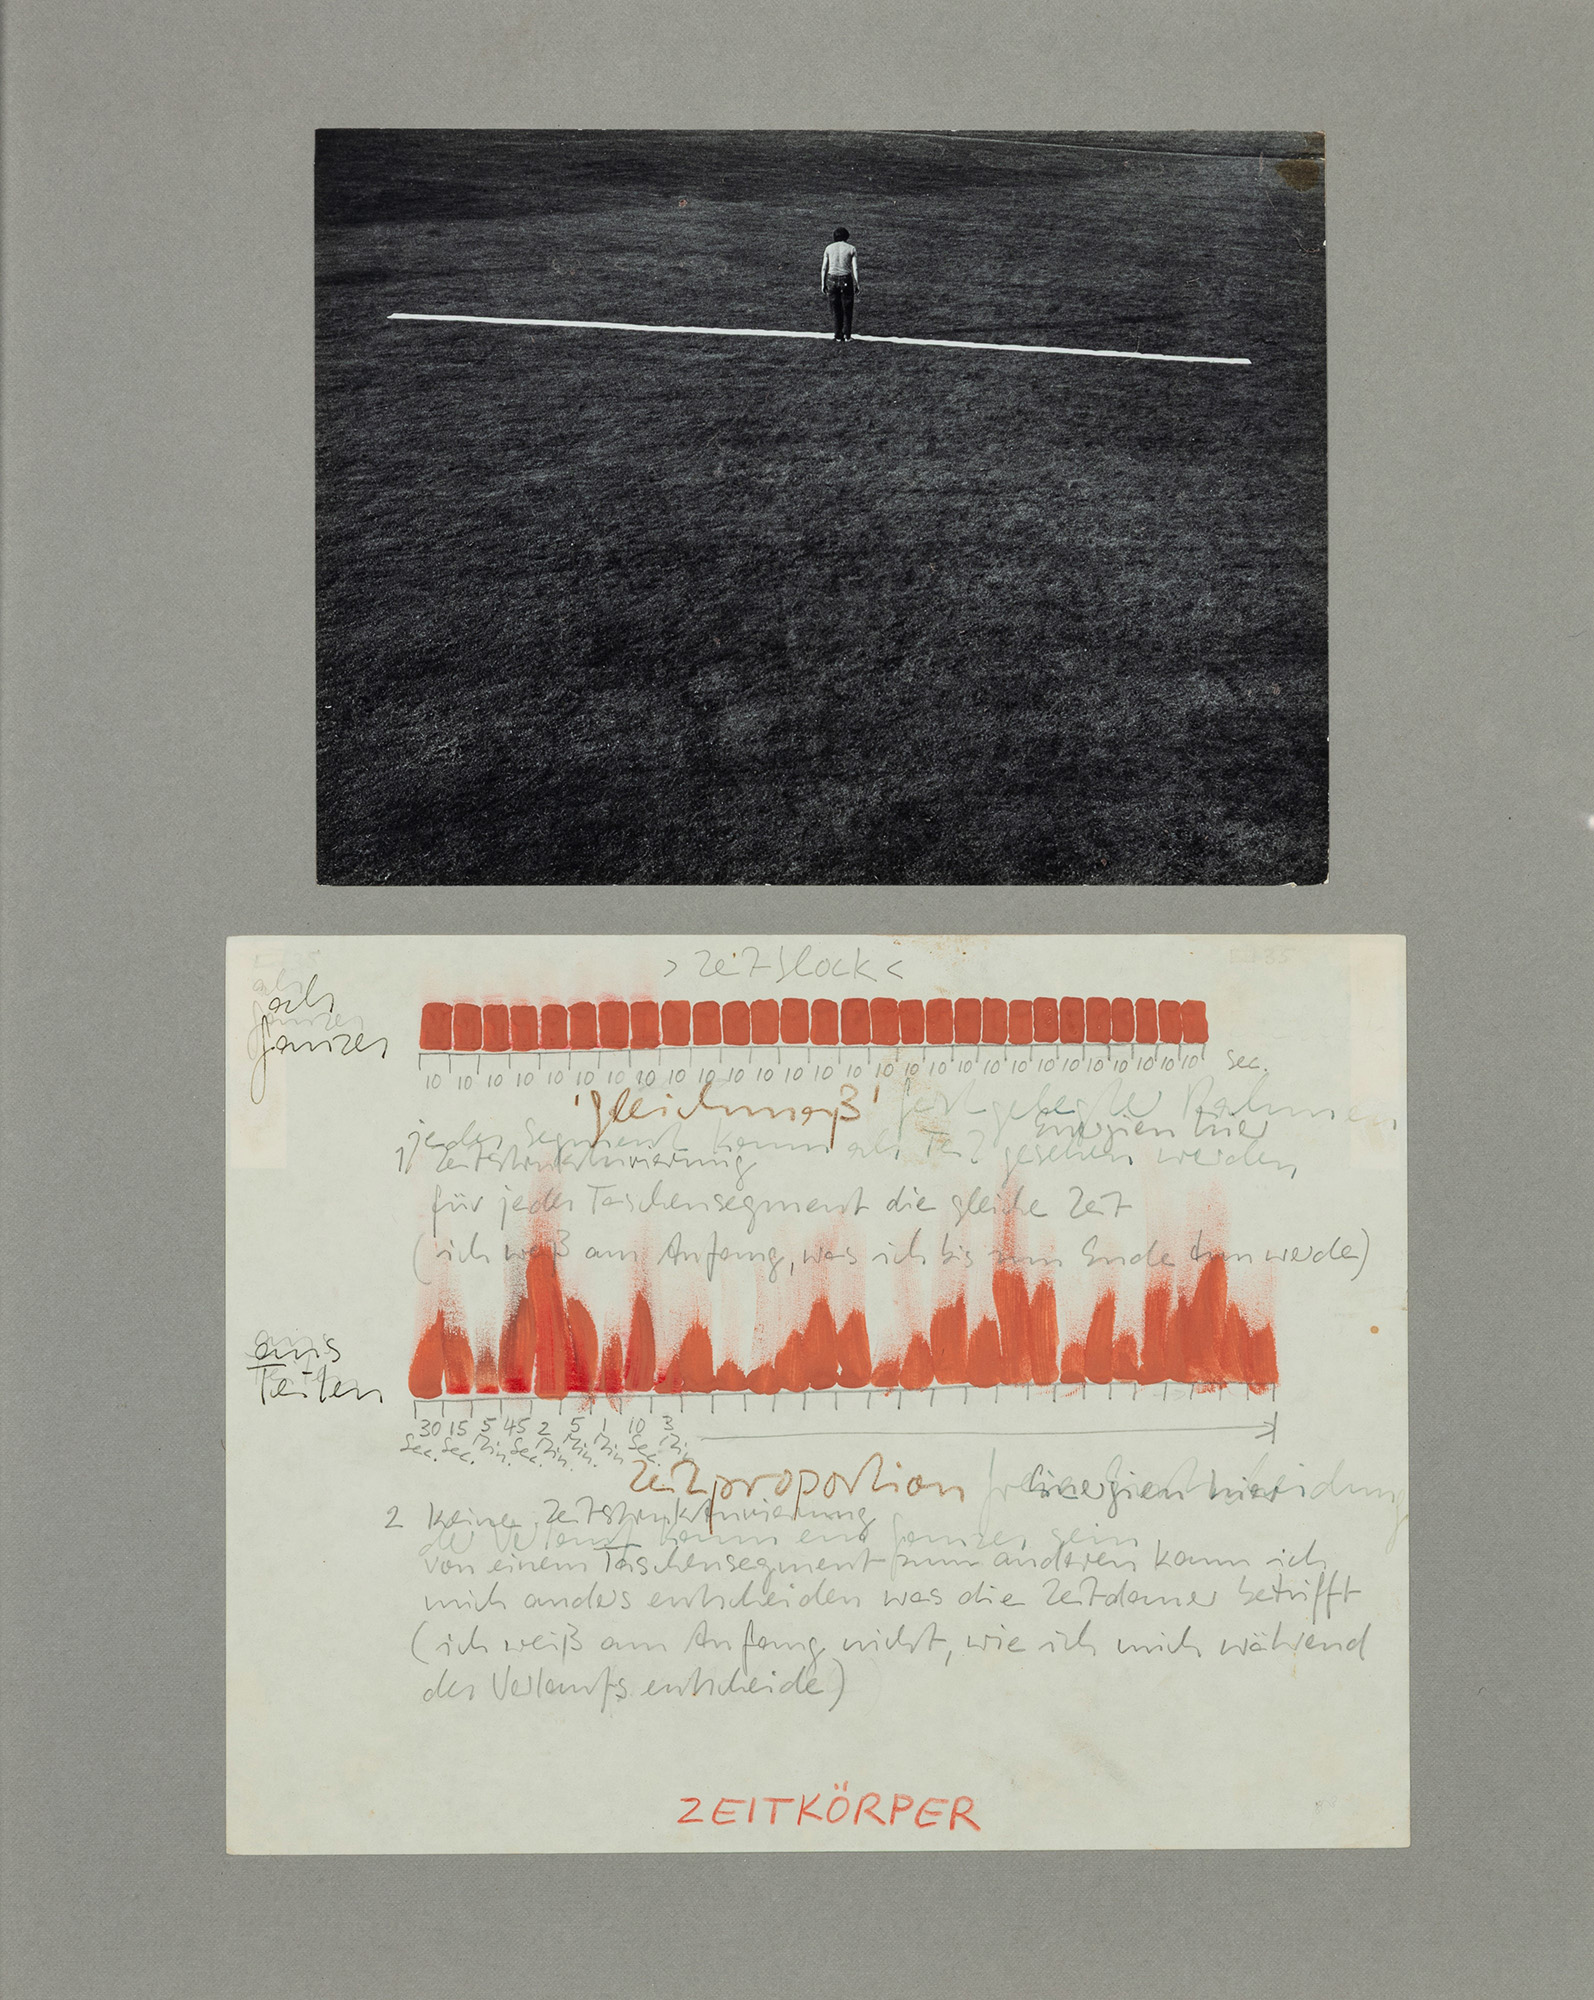 >Zeitblock<
als
Ganzes
10 10 10 10 10 10 10 10 10 10 10 10 10 10 10 10 10 10 10 10 10 10 10 10 10 10 10 Sec.
'Gleichmaß' festgelegter Rahmen
jedes Segment kann als Teil gesehen werden,
1) Zeitstrukturierung
für jedes Taschensegment die gleiche Zeit
(ich weiß am Anfang, was ich bis zum Ende tun werde)
aus
Teilen
30 15 5 45 2 5 1 10 3
Sec. Sec. Min. Sec. Min. Min. Min. Sec. Min.
Zeitproportion
2 Keine Zeitstrukturierung
der Verlauf kann ein Ganzes sein
von einem Taschensegment zum anderen kann ich
mich anders entscheiden was die Zeitdauer betrifft
(ich weiß am Anfang nicht, wie ich mich während
des Verlaufs entscheide)
ZEITKÖRPER